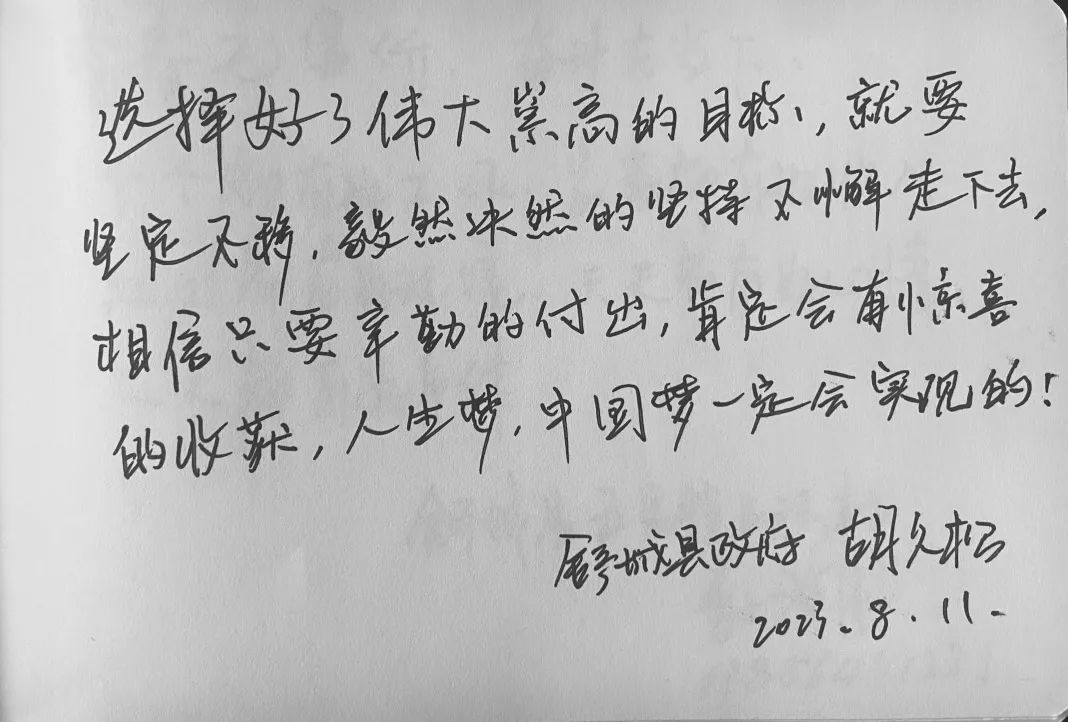 选择好了伟大崇高的目标，就要
坚定不移，毅然决然的坚持不懈走下去，
相信只要辛勤的付出，肯定会有惊喜
的收获，人生梦，中国梦一定会实现的！
舒城县政府 胡久松
2023.8.11.